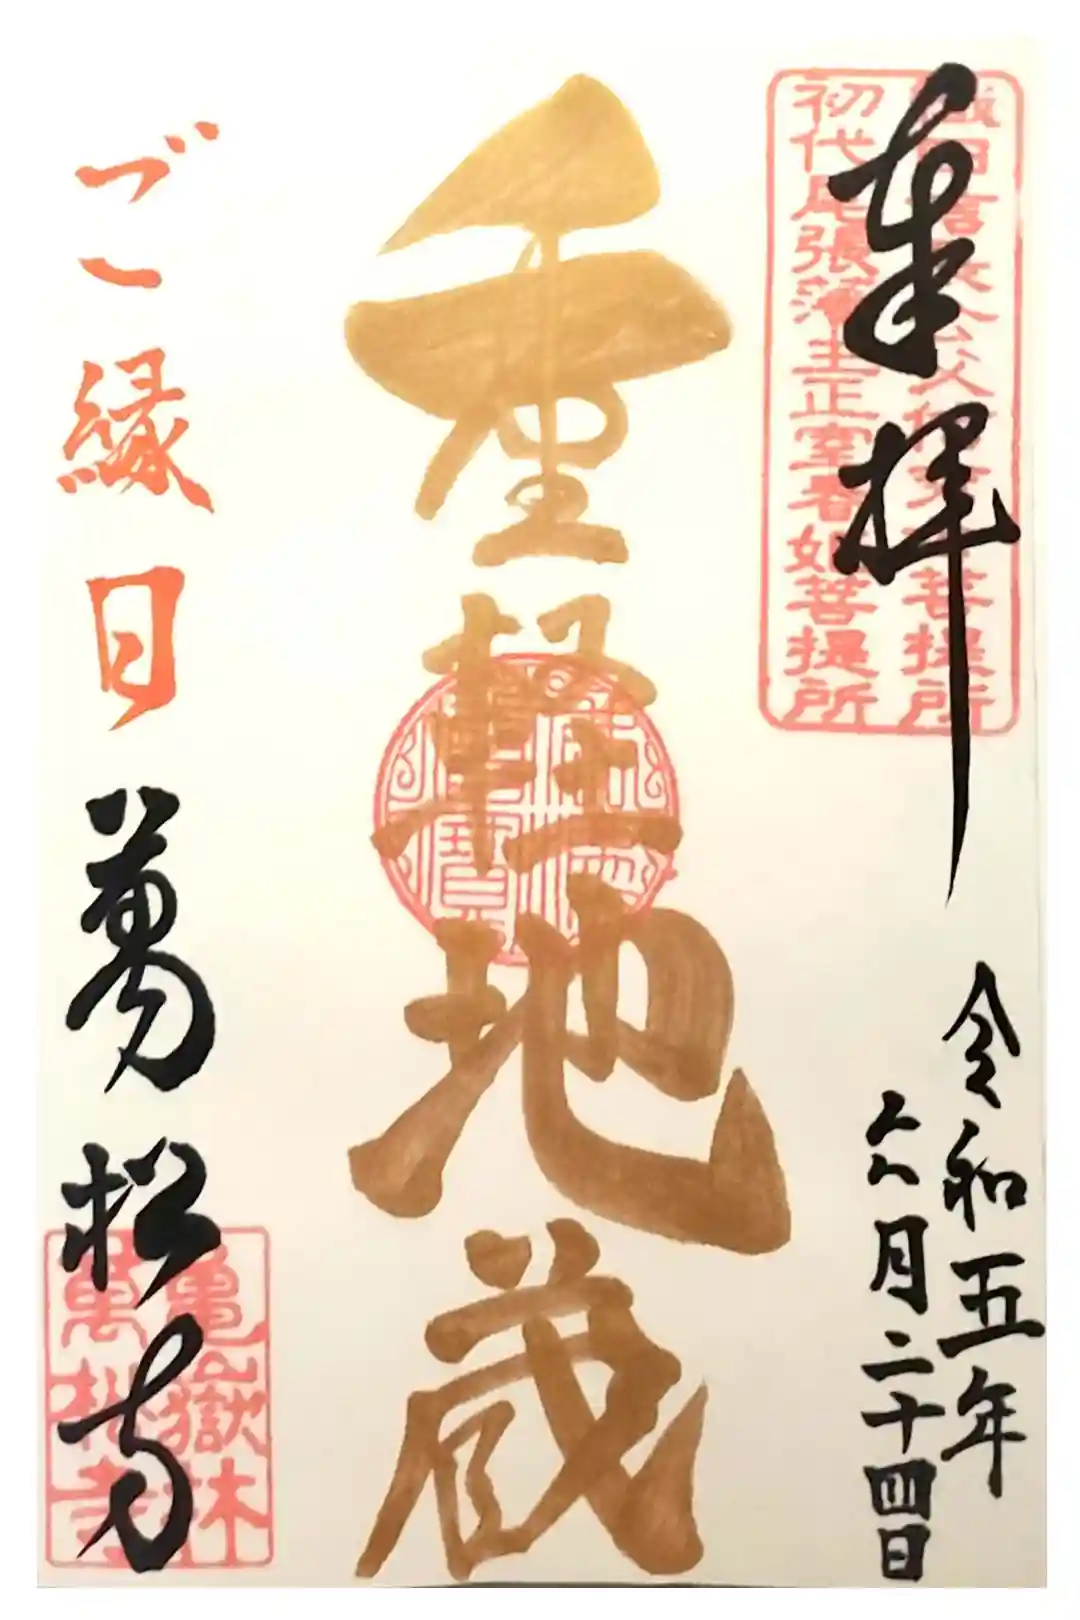 奉拝
織田信長公父信秀菩提所
初代尾張藩主正室春姫菩提所
令和五年
六月二十四日
重軽地蔵
ご縁日
萬松寺
亀嶽林
萬松寺